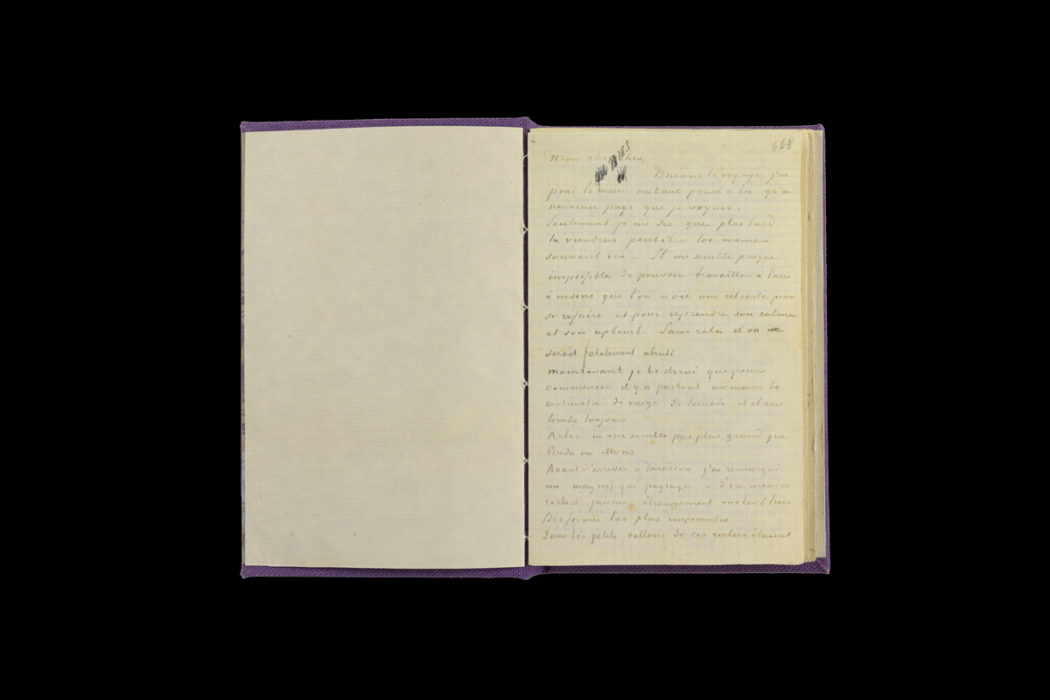 468
Mon cher Theo,
Durant le voyage j'ai
pour le moins autant pensé à toi qu'au
nouveau pays que je voyais.
Seulement je me dis que plus tard
tu viendras peut être toi-même
souvent ici. Il me semble presque
impossible de pouvoir travailler à Paris
à moins que l'on n'aie une retraite pour
se refaire et pour reprendre son calme
et son aplomb. Sans cela l'on
serait fatalement abruti
maintenant je te dirai que pour
commencer il y a partout au moins 60
centimètres de neige de tombée et il en
tombe toujours
Arles ne me semble pas plus grand que
Breda ou Mons
Avant d'arriver à Tarascon j'ai remarqué
un magnifique paysage – d'immenses
rochers jaunes, étrangement enchevêtrés
Des formes les plus imposantes
Dans les petits vallons de ces rochers étaient